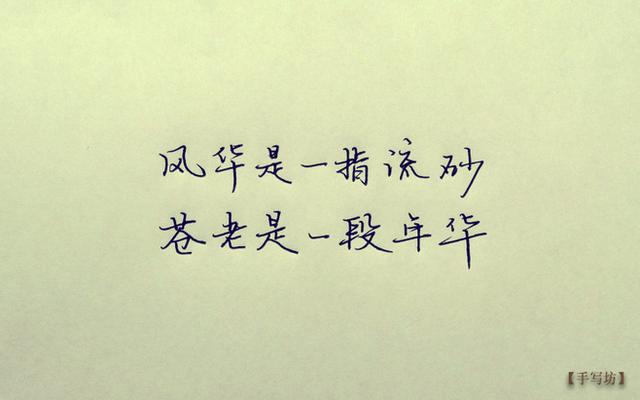 风华是一指流砂
苍老是一段年华
【手写坊】